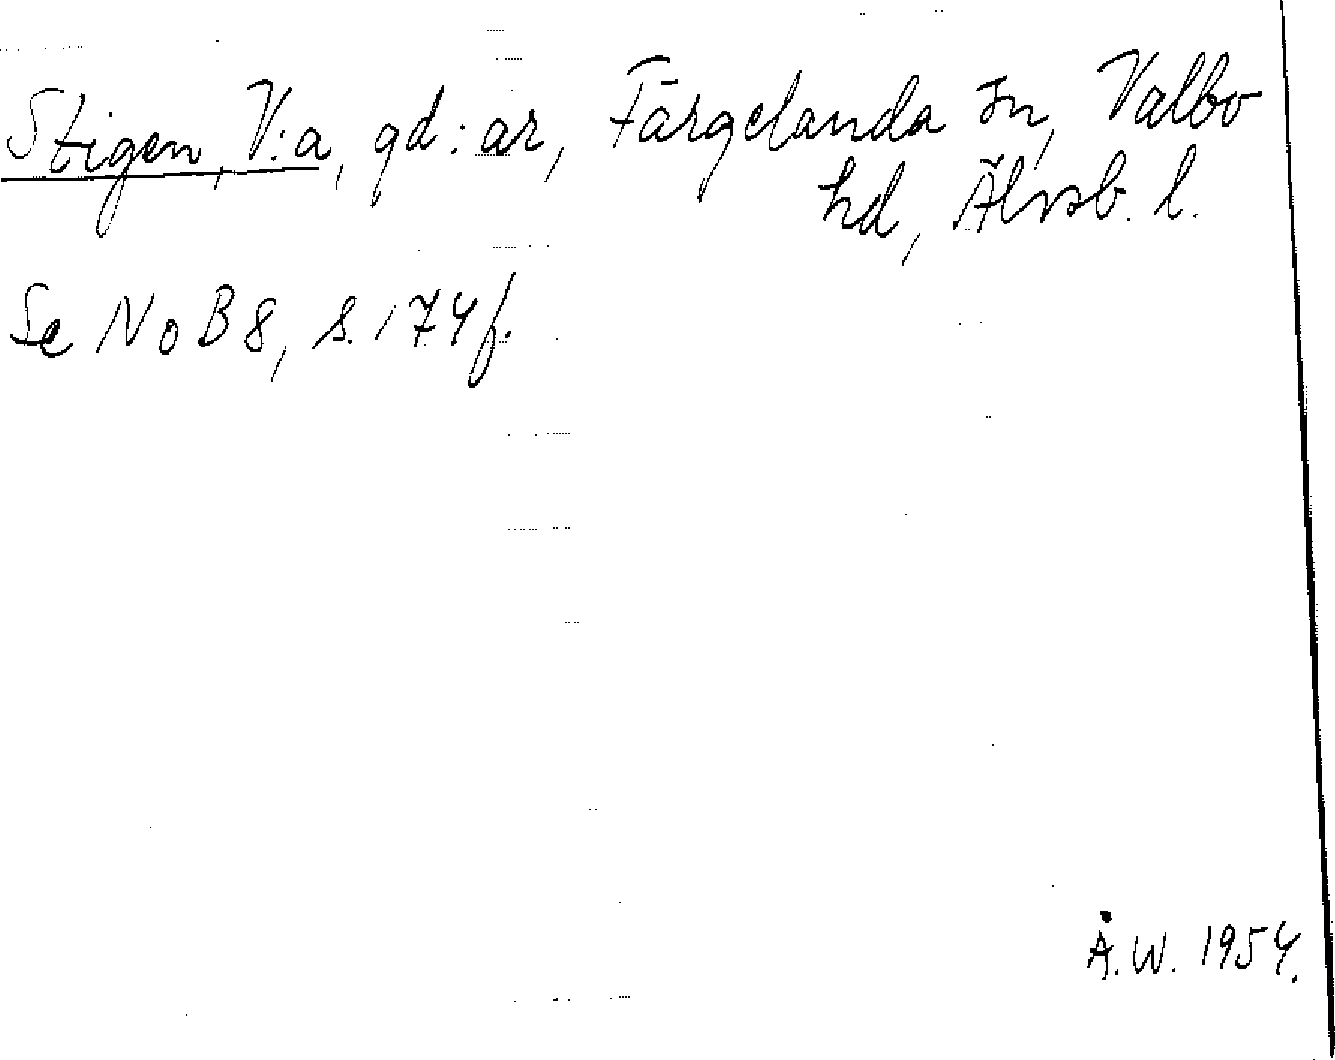 Stigen, V:a, gd:ar, Färgelanda sn, Valbo
hd, Älvsb. l.
Se NoB 8, s. 174 f.
Å.W. 1954.